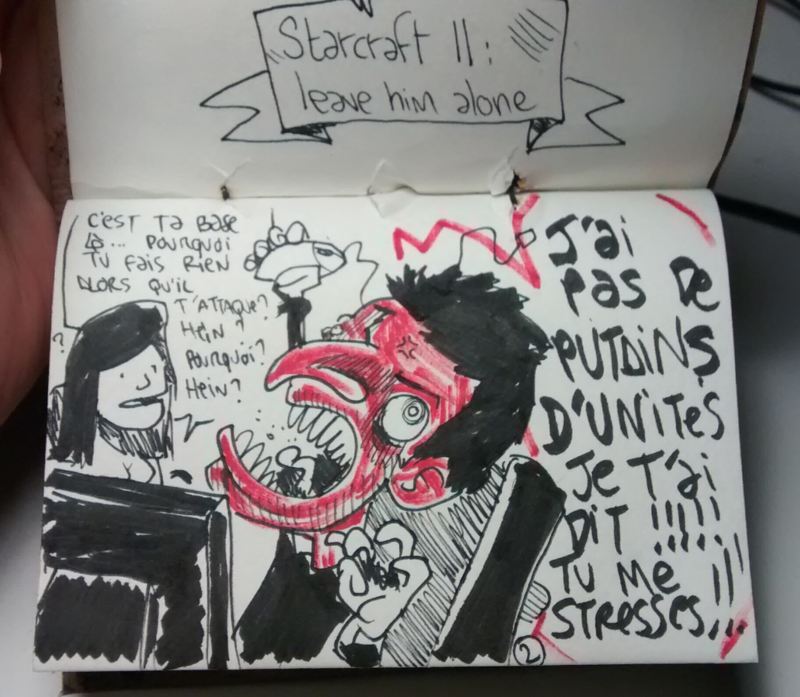 Starcraft II:
leave him alone
C'EST TA BASE
LÀ... POURQUOI
TU FAIS RIEN
ALORS QU'IL
T'ATTAQUE?
HEIN?
POURQUOI?
HEIN?
?
J'ai
pas DE
PUTAINS
D'UNITES
JE T'ai
DIT !!!!!
TU ME
STRESSES...!!
2